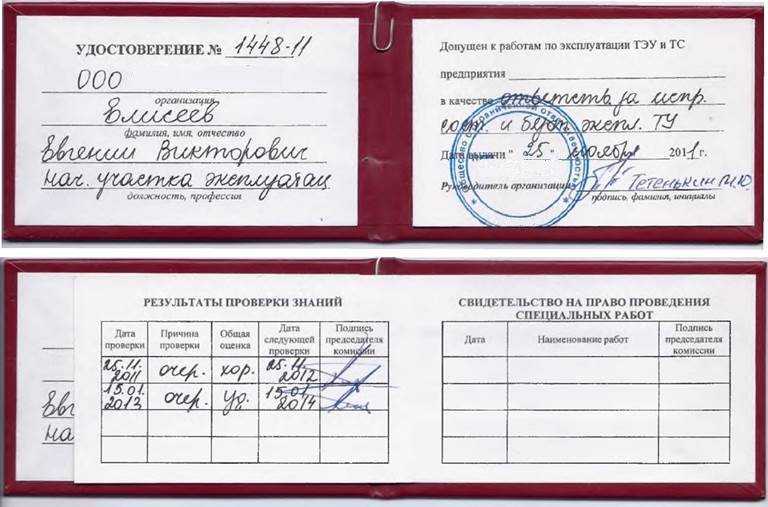 УДОСТОВЕРЕНИЕ № 1448-11
ООО
организация
Елисеев
фамилия, имя, отчество
Евгений Викторович
нач. участка эксплуатац
должность, профессия
Допущен к работам по эксплуатации ТЭУ и ТС
предприятия
в качестве ответств за испр.
сост. и безоп. экспл. ТУ
Дата выдачи "25" ноября 2011 г.
Руководитель организации Тетенькин М.Ю.
подпись, фамилия, инициалы
РЕЗУЛЬТАТЫ ПРОВЕРКИ ЗНАНИЙ
Дата проверки Причина проверки Общая оценка Дата следующей проверки Подпись председателя комиссии
25.11.2011 очер. хор. 25.11.2012
15.01.2013 очер. 15.01.2014
Евг
На
СВИДЕТЕЛЬСТВО НА ПРАВО ПРОВЕДЕНИЯ
СПЕЦИАЛЬНЫХ РАБОТ
Дата Наименование работ Подпись председателя комиссии